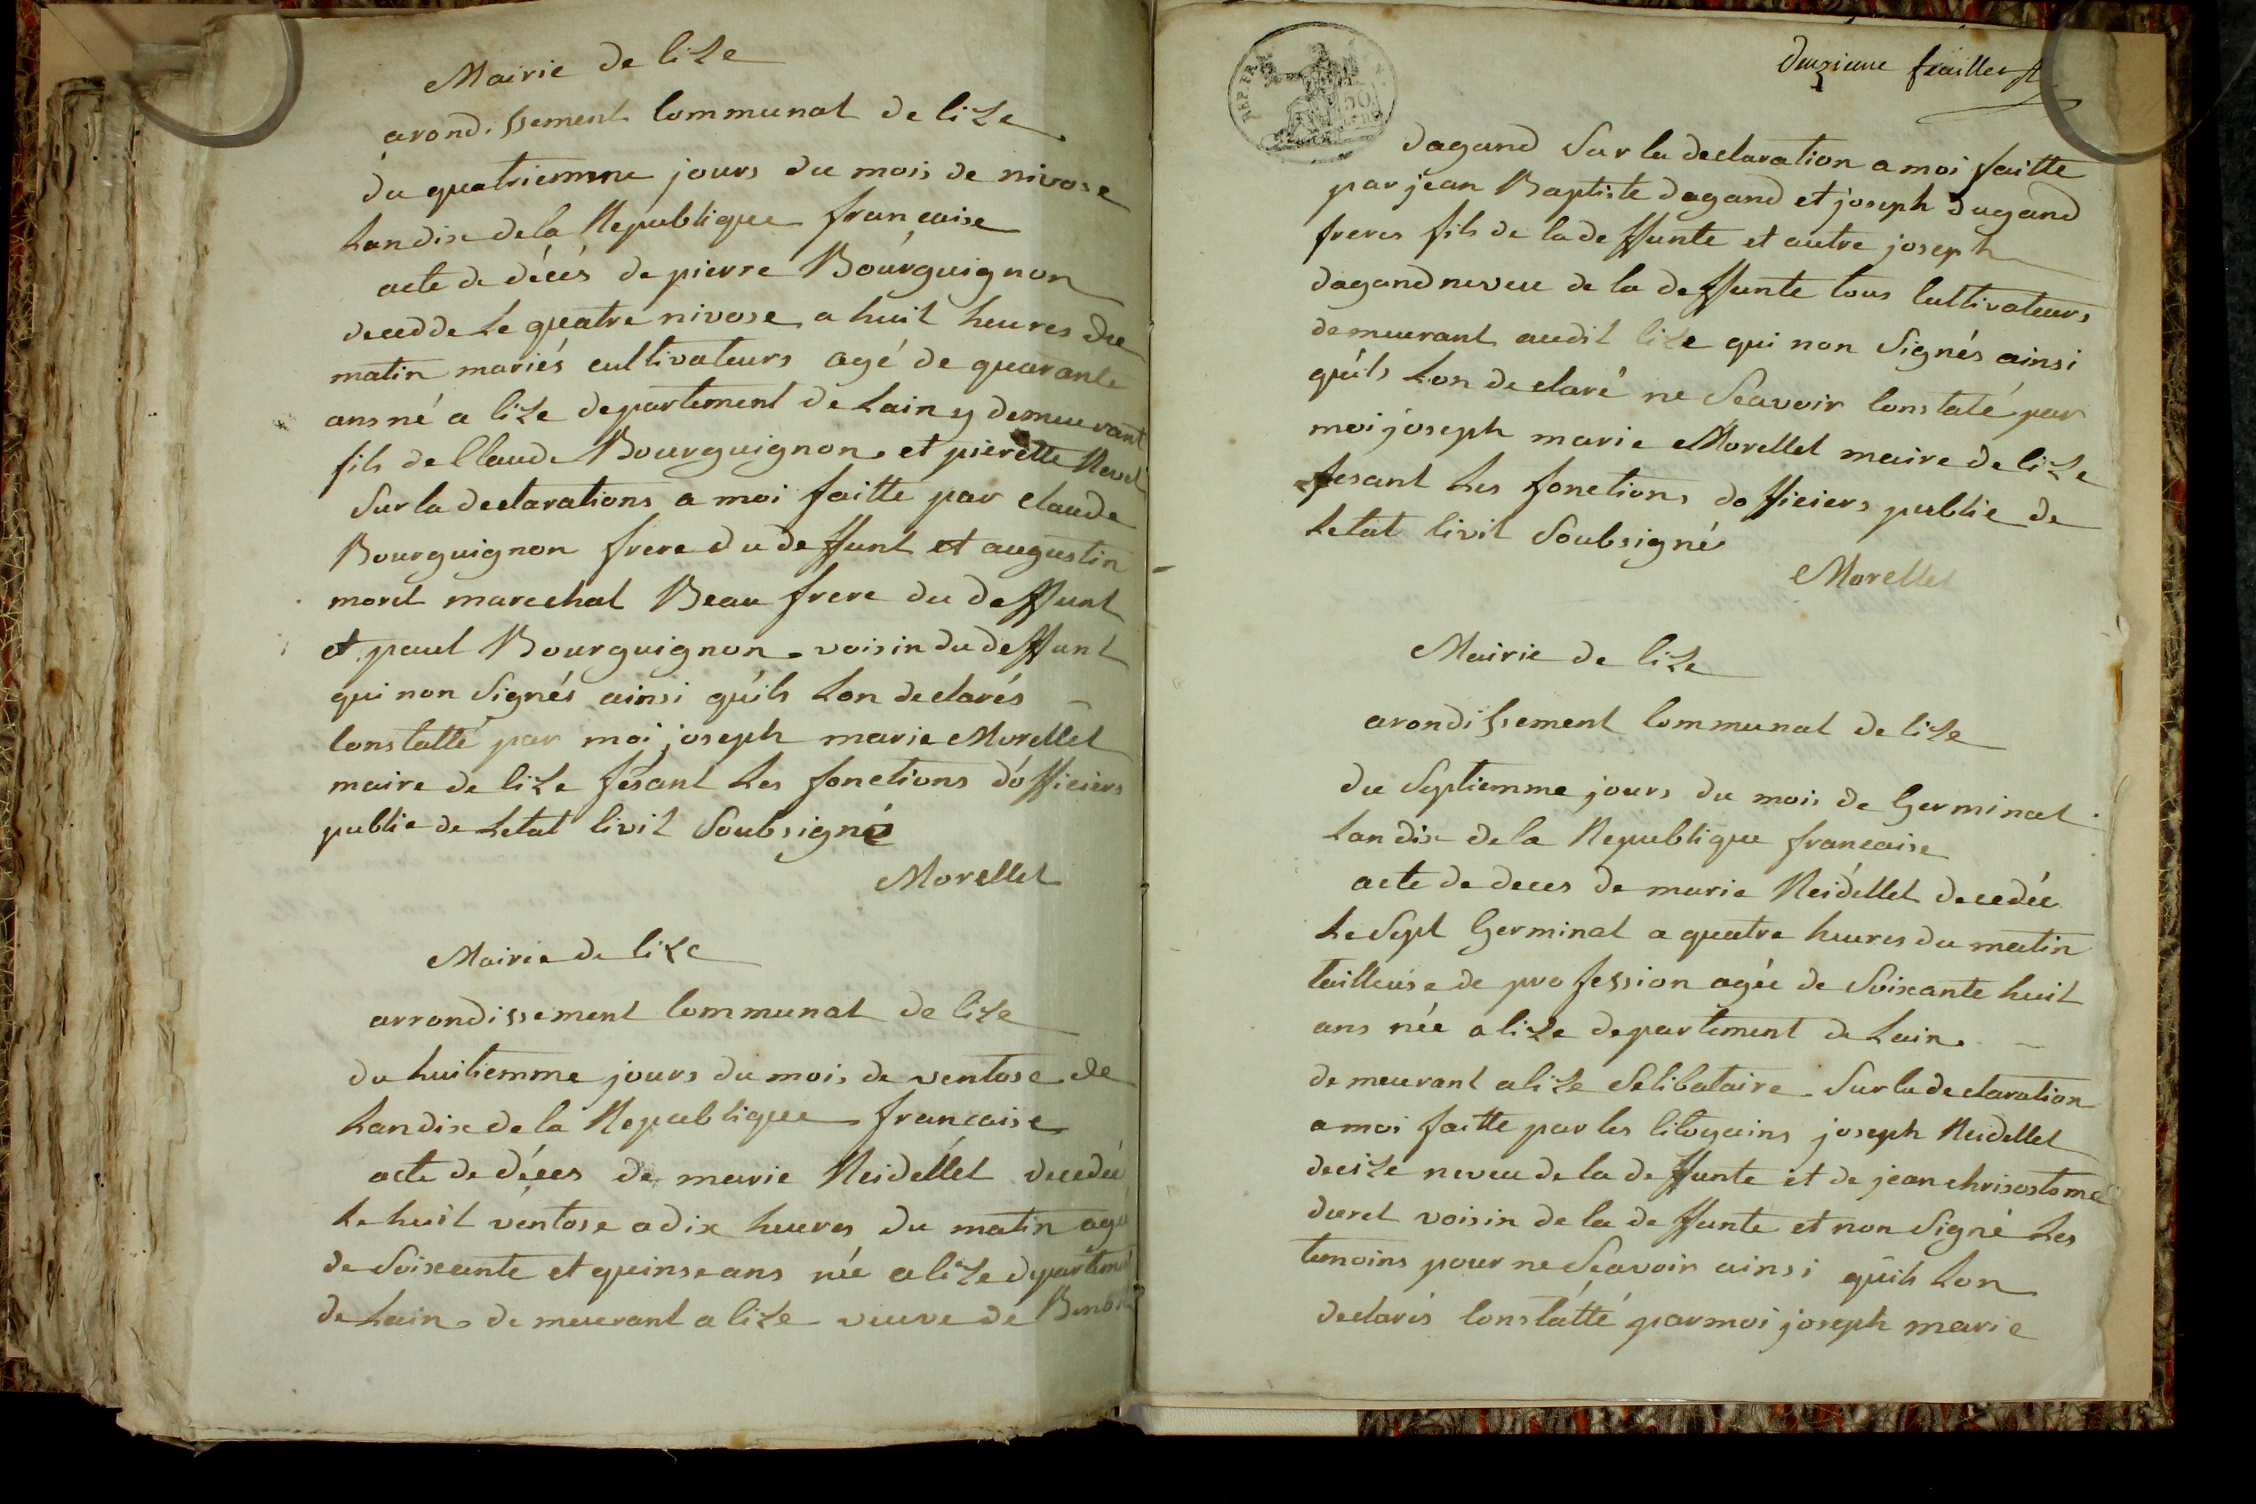 Mairie de Cize
arondissement Communal de Cize
du quatriemme jours du mois de nivose
Lan dix de la Republique française
acte de décés de pierre Bourguignon
decedde Le quatre nivose a huit heures du
matin mariés cultivateurs agé de quarante
ans né a Cize departement de Lain y demeurant
fils de Claude Bourguignon et pierette Revel
Sur la declarations a moi faitte par Claude
Bourguignon frere du deffunt et augustin
morel marechal Beau frere du deffunt
et paul Bourguignon voisin du deffunt
qui non Signés ainsi quils Lon declarés
Constatté par moi joseph marie Morellet
maire de Cize fesant Les fonctions dofficiers
public de Letat Civil Soubsigné
Morellet
Mairie de Cize
arrondissement Communal de Cize
du huitiemme jours du mois de ventose de
Lan dix de la Republique francaise
acte de déces de marie Reidellet decedeé
Le huit ventose a dix heures du matin ageé
de Soixante et quinse ans née a Cize departement
de Lain demeurant a Cize veuve de
deuzieme feuillet
REP. FRA.
50
dagand Sur la declaration a moi faitte
par jean Baptiste dagand et joseph dagand
freres fils de la deffunte et autre joseph
dagand neveu de la deffunte tous Cultivateurs
demeurant audit Cize qui non Signés ainsi
quils Lon declaré ne Scavoir Constaté par
moi joseph marie Morellet maire de Cize
fesant Les fonctions dofficiers public de
Letat Civil Soubsigné
Morellet
Mairie de Cize
arondissement Communal de Cize
du Septiemme jours du mois de Germinal
Lan dix de la Republique francaise
acte de deces de marie Reidellet decedée
Le Sept Germinal a quatre heures du matin
tailleuse de profession agée de Soixante huit
ans née a Cize departement de Lain
demeurant a Cize Selibataire Sur la declaration
a moi faitte par les Citoyains joseph Reidellet
de Cize neveu de la deffunte et de jean chrisostome
duret voisin de la deffunte et non Signé Les
temoins pour ne Scavoir ainsi quils Lon
declarés Constatté par moi joseph marie